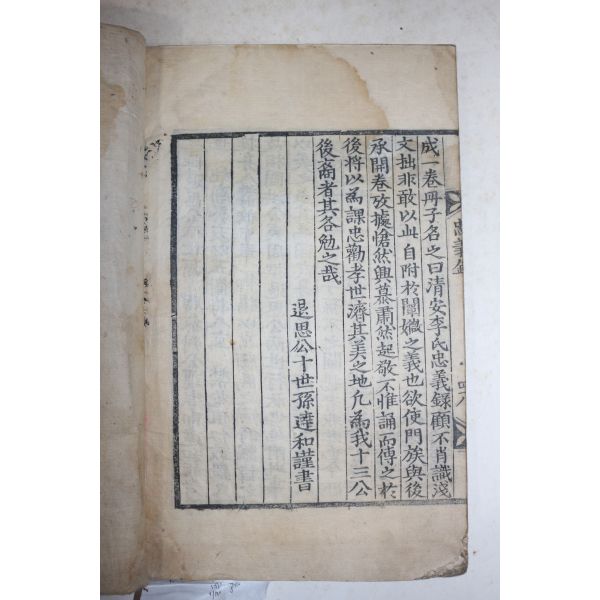 成一卷冊子名之曰清安李氏忠義錄顧不肖識淺
文拙非敢以此自附於闡嫩之義也欲使門族與後
承開卷攷據愴然興慕肅然起敬不惟誦而傳之於
後將以為課忠勸孝世濟其美之地凡為我十三公
後裔者其各勉之哉
退思公十世孫達和謹書
忠義錄